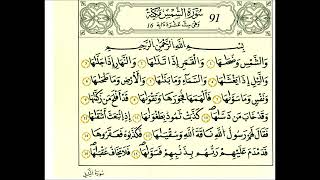 سُورَةُ الشَّمْسِ مَكِّيَّةٌ 91
وَهِيَ سِتَّ عَشْرَةَ ءَايَةً 16
بِسْمِ اللَّهِ الرَّحْمَٰنِ الرَّحِيمِ
وَالشَّمْسِ وَضُحَىٰهَا ١ وَالْقَمَرِ إِذَا تَلَىٰهَا ٢ وَالنَّهَارِ إِذَا جَلَّىٰهَا ٣
وَالَّيْلِ إِذَا يَغْشَىٰهَا ٤ وَالسَّمَآءِ وَمَا بَنَىٰهَا ٥ وَالْأَرْضِ وَمَا طَحَىٰهَا ٦
وَنَفْسٍ وَمَا سَوَّىٰهَا ٧ فَأَلْهَمَهَا فُجُورَهَا وَتَقْوَىٰهَا ٨ قَدَ أَفْلَحَ مَن زَكَّىٰهَا ٩
وَقَدْ خَابَ مَن دَسَّىٰهَا ١٠ كَذَّبَتْ ثَمُودُ بِطَغْوَىٰهَا ١١ إِذِ انۢبَعَثَ أَشْقَىٰهَا ١٢
فَقَالَ لَهُمْ رَسُولُ اللَّهِ نَاقَةَ اللَّهِ وَسُقْيَٰهَا ١٣ فَكَذَّبُوهُ فَعَقَرُوهَا ١٤
فَدَمْدَمَ عَلَيْهِمْ رَبُّهُم بِذَنۢبِهِمْ فَسَوَّىٰهَا ١٥ فَلَا يَخَافُ عُقْبَٰهَا ١٦
سورة الليل